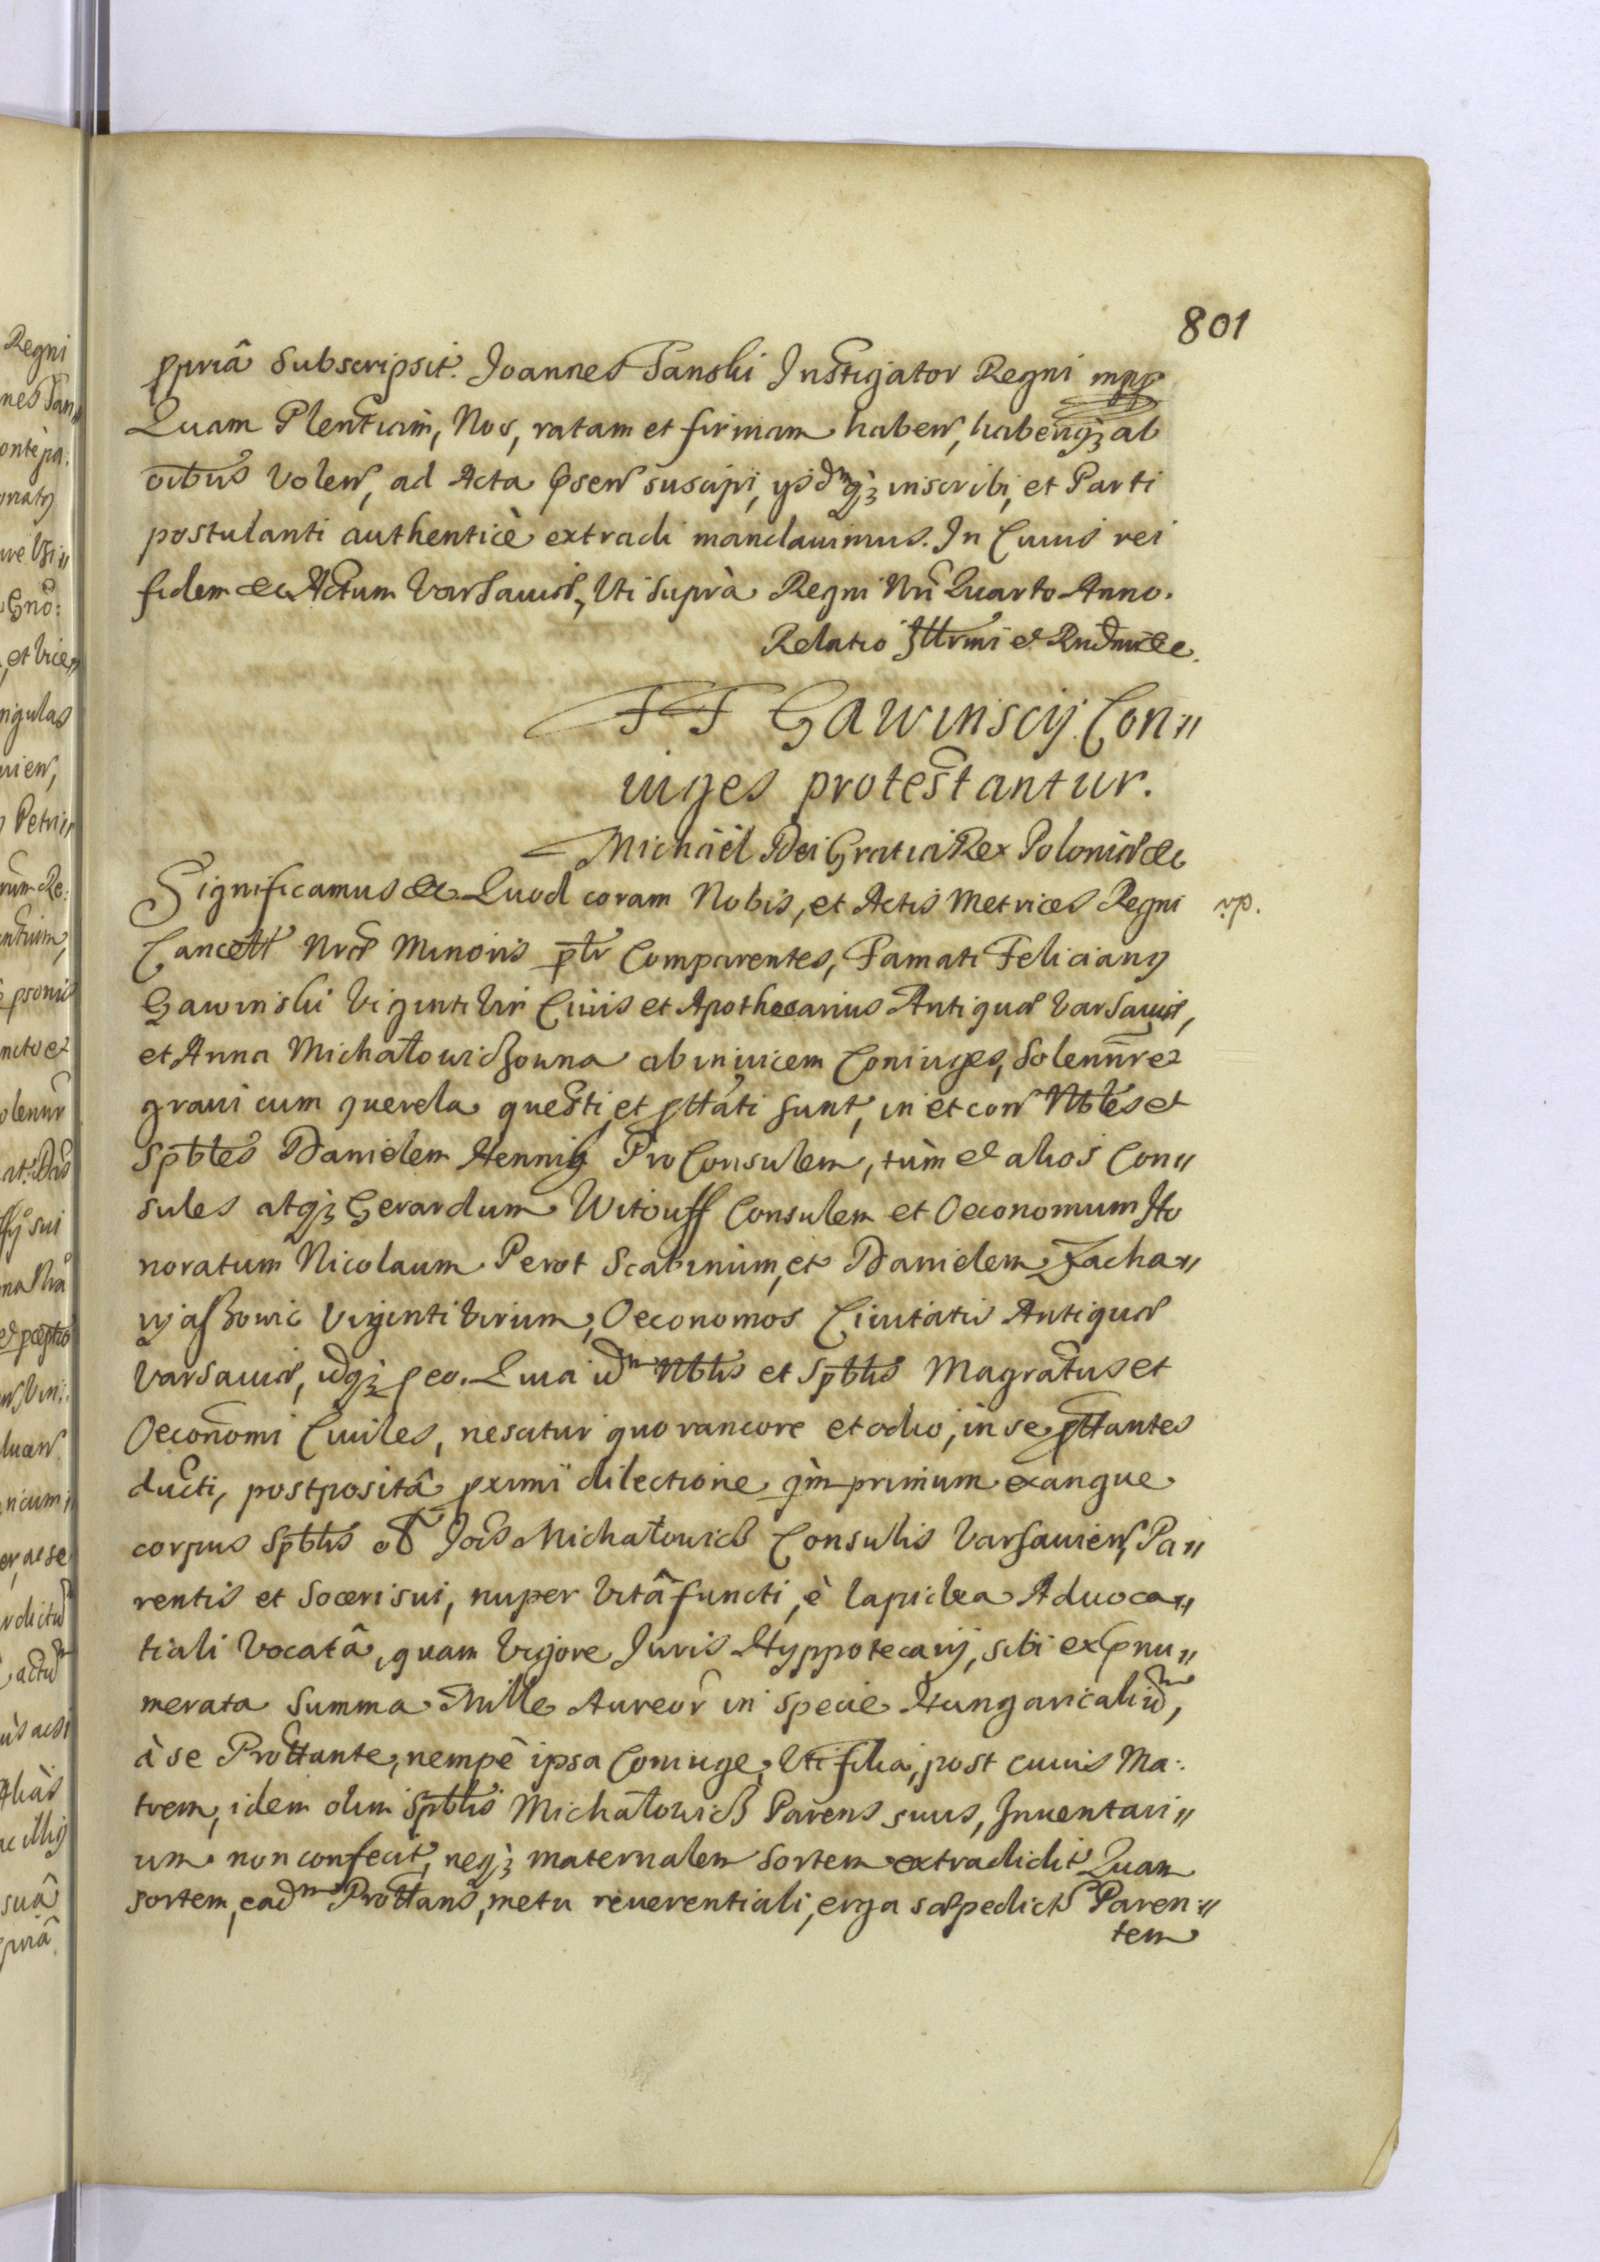 801
ppriâ Subscripsit. Joannes Tanski Instigator Regni mpp
Quam Plentiam, Nos, ratam et firmam haben, haberiq3 ab
oibus volen, ad Acta Psen suscipi, ysdmq3 inscribi, et Parti
postulanti authenticè extradi mandavimus. In Cuius rei
fidem &c. Actum Varsaviæ, Uti Suprà Regni Nri Quarto Anno.
Relatio Jllrmi et Rndmi &c.
F F Gawinscij Con〃
iuges protestantur.
Michäel Dei Gratia Rex Poloniæ &c
Significamus &c. Quod coram Nobis, et Actis Metrices Regni
vp.
Cancell Nræ Minoris pltr Comparentes, Famati Felicianus
Gawinski Viginti Vir Civis et Apothecarius Antiquæ Varsaviæ,
et Anna Michałowiczowna ab invicem Coniuges, Solennr et
gravi cum querela questi, et pttati sunt, in et con Nbles et
Spbles Danielem Hennig ProConsulem, tùm et alios Con〃
sules atq3 Gerardum Witouff Consulem et Oeconomum Ho
noratum Nicolaum Perot Scabinum, et Danielem Zacha〃
ryaszowic Vigintivirum, Oeconomos Civitatis Antiquæ
Varsaviæ, idq3 peo. Quia iidm Nbles et Spbles Magratus et
Oeconomi Civiles, nescitur quo rancore et odio, in se pttantes
ducti, postpositâ pximi dilectione qm primum exangue
corpus Spblis o& Jois Michałowicz Consulis Varsavien, Pa〃
rentis et Soceri sui, nuper Vitâ functi, è lapidea Advoca〃
tiali Vocatâ, quam Vigore Juris Hyppotecarij, sibi ex Pnu〃
merata Summa Mille Aureor in specie Hungaricaliũ,
à se Prottante, nempè ipsa Coniuge, Uti filia, post cuius Ma:
trem, idem olim Spblis Michałowicz Parens suus, Inventari〃
um non confecit, neq3 maternalem Sortem extradidit Quam
sortem, eadm Prottans, metu reverentiali, erga sæpedict Paren〃
tem